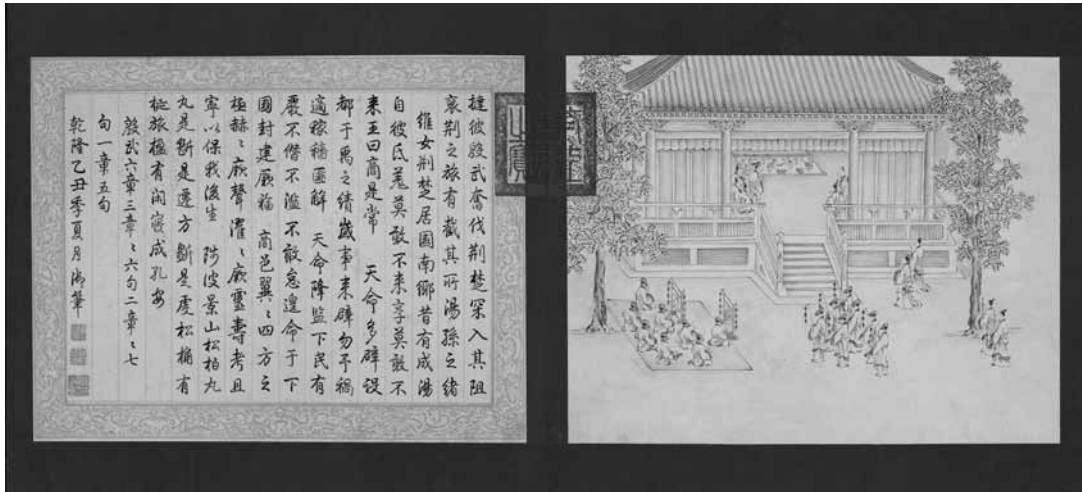 撻彼殷武奮伐荊楚罙入其阻
裒荊之旅有截其所湯孫之緒
維女荊楚居國南鄉昔有成湯
自彼氐羌莫敢不來享莫敢不
来王曰商是常 天命多辟設
都于禹之績歲事来辟勿予禍
適稼穡匪解 天命降監下民有
嚴不僭不濫不敢怠遑命于下
國封建厥福 商邑翼〻四方之
極赫〻厥聲濯〻厥靈壽考且
寧以保我後生 陟彼景山松柏丸
丸是斷是遷方斲是虔松桷有
梴旅楹有閑寢成孔安
殷武六章三章〻六句二章〻七
句一章五句
乾隆乙丑季夏月御筆